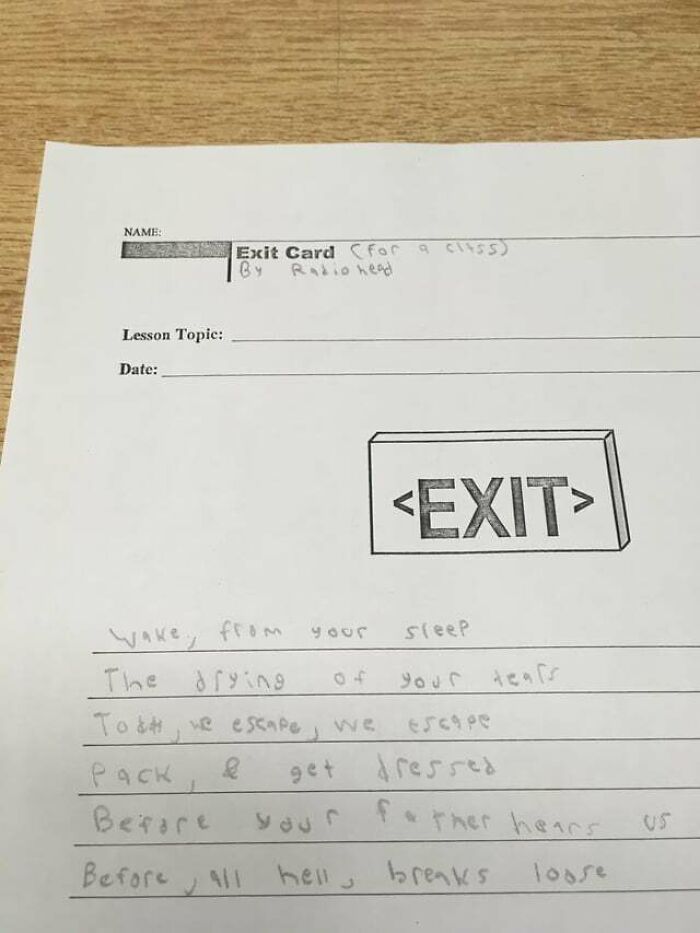 NAME:
Exit Card (for a class)
By Radiohead
Lesson Topic:
Date:
<EXIT>
Wake, from your sleep
The drying of your tears
we escape, we escape
Pack, & get dressed
Before your father hears us
Before, all hell, breaks loose